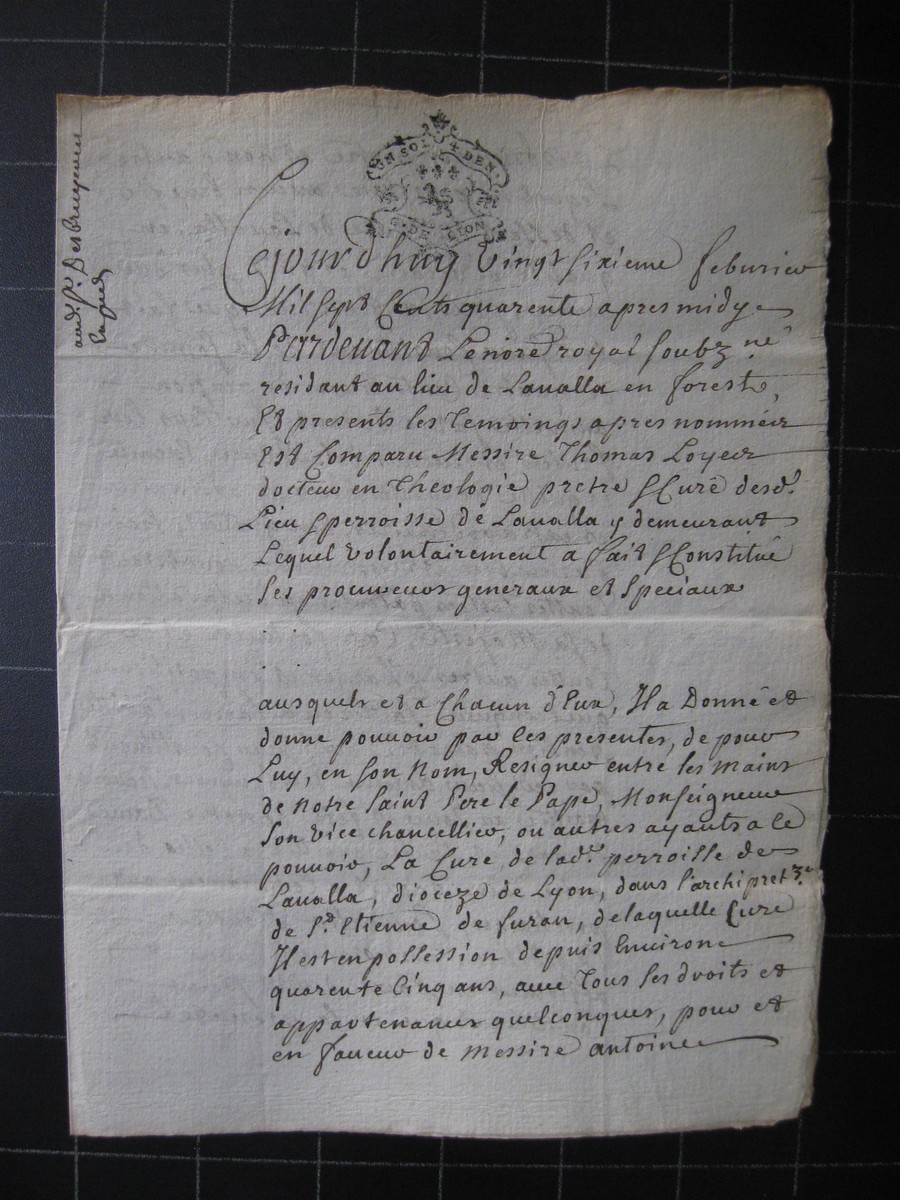 UN SOL + DEN.
G. DE LION
aud. Sr. Desbruyeres
Cejourd'huy vingt sixieme feburier
Mil sept Cents quarente apres midy
Pardevant Le nore royal soubz.né
residant au lieu de Lavalla en forest,
Et presents les temoings apres nommés
Est Comparu Messire Thomas Loyer
docteur en Theologie pretre & Curé desd.
Lieu & perroisse de Lavalla y demeurant
Lequel volontairement a fait & Constitué
ses procureurs generaux et speciaux
ausquels et a Chacun d'Eux, Il a Donné et
donne pouvoir par les presentes, de pour
Luy, en son Nom, Resigner entre les mains
de Notre saint Pere le Pape, Monseigneur
son vice chancellier, ou autres ayants a le
pouvoir, La Cure de lad.e perroisse de
Lavalla, dioceze de Lyon, dans l'archipret.ré
de St. Etienne de furan, de laquelle Cure
Il est en possession depuis Environ
quarente Cinq ans, avec tous ses droits et
appartenances quelconques, pour et
en faveur de Messire antoine